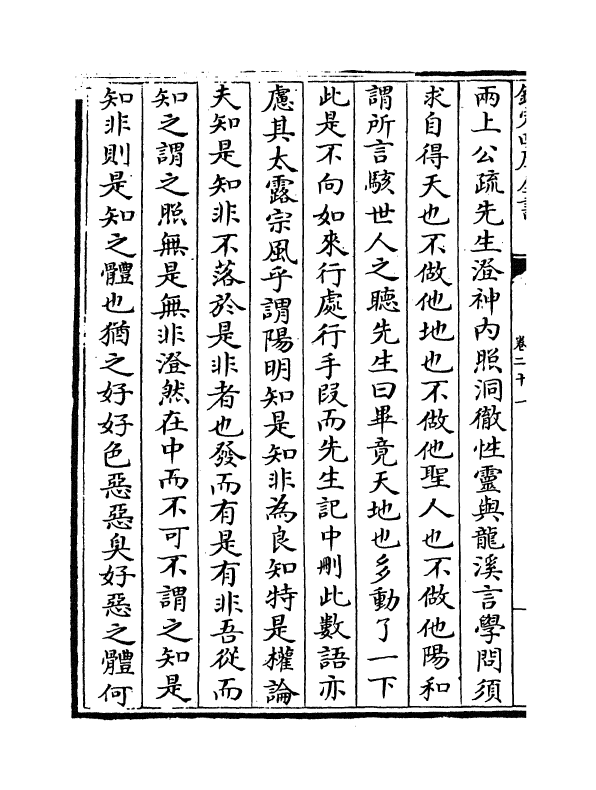 欽定四庫全書
卷二十一
兩上公疏先生澄神内照洞徹性靈與龍溪言學問須
求自得天也不做他地也不做他聖人也不做他陽和
謂所言駭世人之聽先生曰畢竟天地也多動了一下
此是不向如來行處行手段而先生記中刪此數語亦
慮其太露宗風乎謂陽明知是知非為良知特是權論
夫知是知非不落於是非者也發而有是有非吾從而
知之謂之照無是無非澄然在中而不可不謂之知是
知非則是知之體也猶之好好色惡惡臭好惡之體何